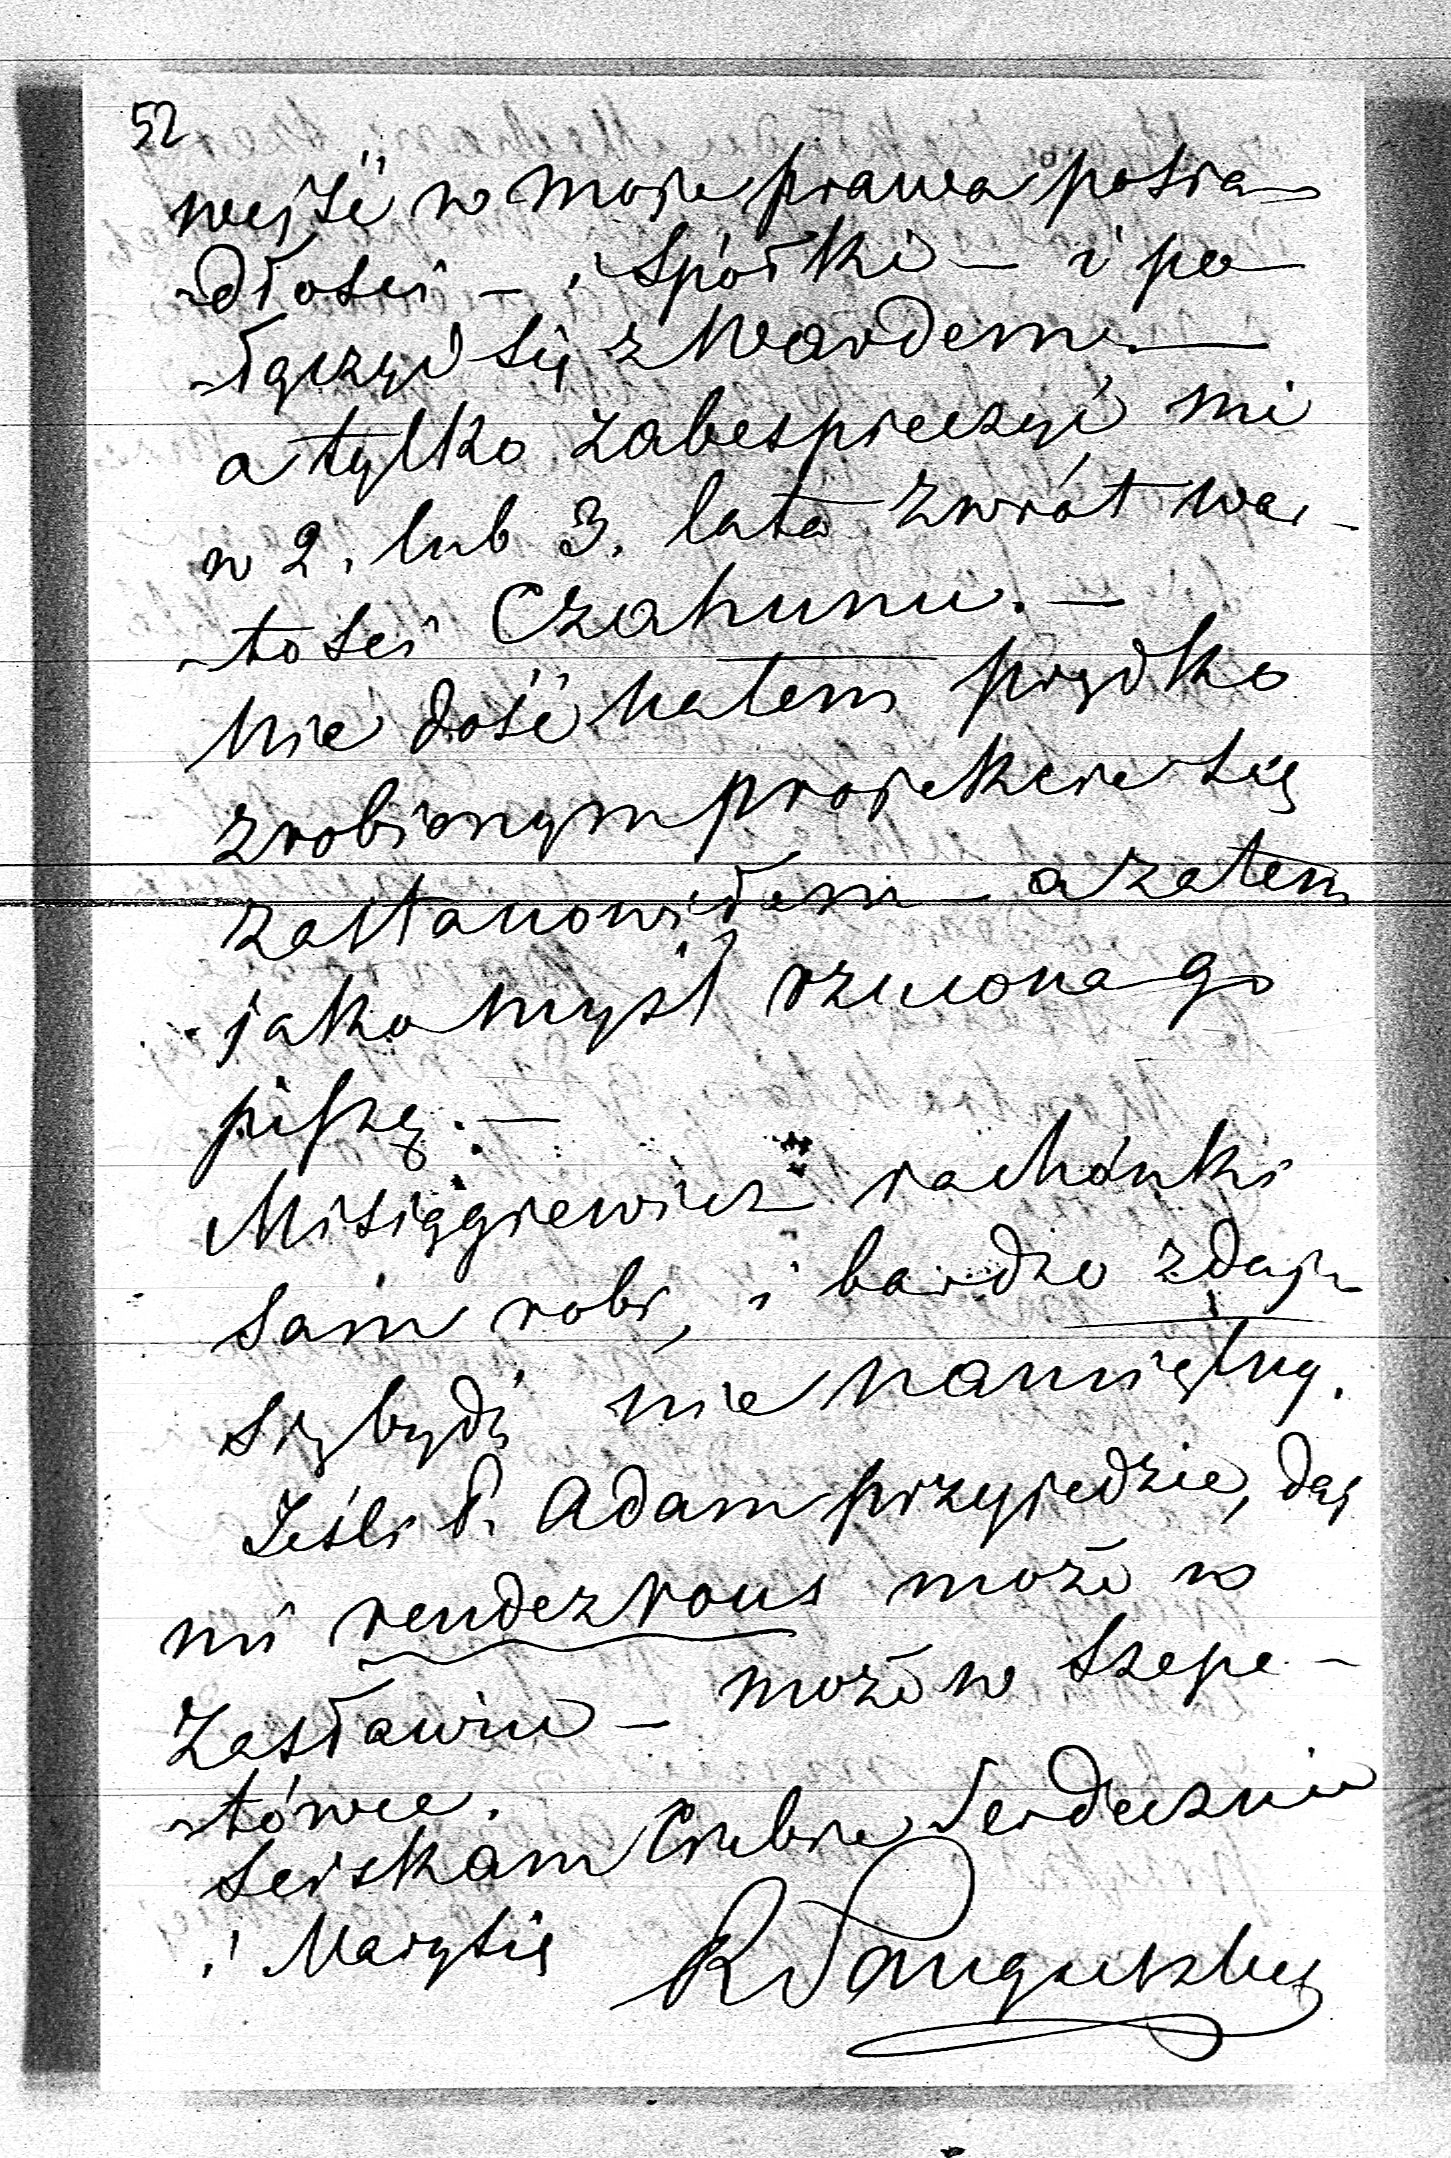 52
wejść w moje prawa posia-
dłości - i Spółki - i po-
łączyć się z Mardem. -
a tylko zabespieczyć mi
w 2. lub 3. lata zwrót war-
tości Czahunu. -
Nie dość natem prędko
zrobionym projekcie się
zastanowiłem - a zatem
jako myśl rzucona go
piszę. -
Misiągiewicz rachónki
sam robi, i bardzo zdaje
się bydź nie namiętny.
Jeśli P. Adam przyjedzie, daj
mi rendezvous może w
Zasławiu - może w Szepe-
tówce.
Serdecznie
Ciebie
i Marysię
R Sanguszko